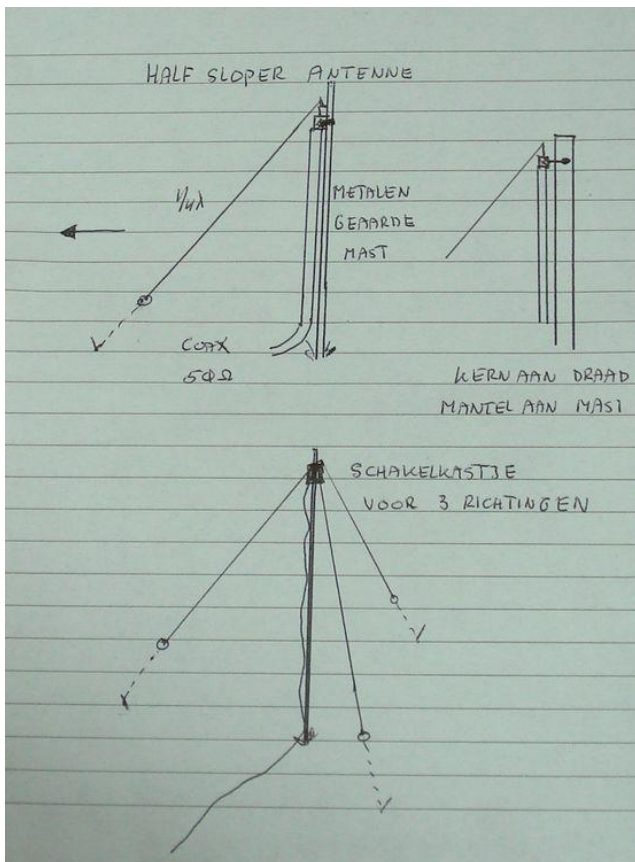 HALF SLOPER ANTENNE
1/4λ
METALEN
GEAARDE
MAST
COAX
50Ω
KERN AAN DRAAD
MANTEL AAN MAST
SCHAKELKASTJE
VOOR 3 RICHTINGEN